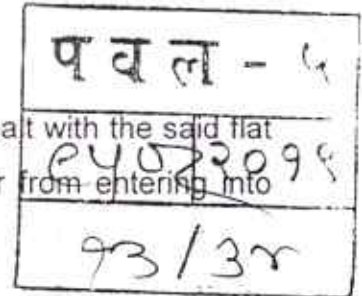 प व ल - ५
alt with the said flat
r from entering into
१३/३४